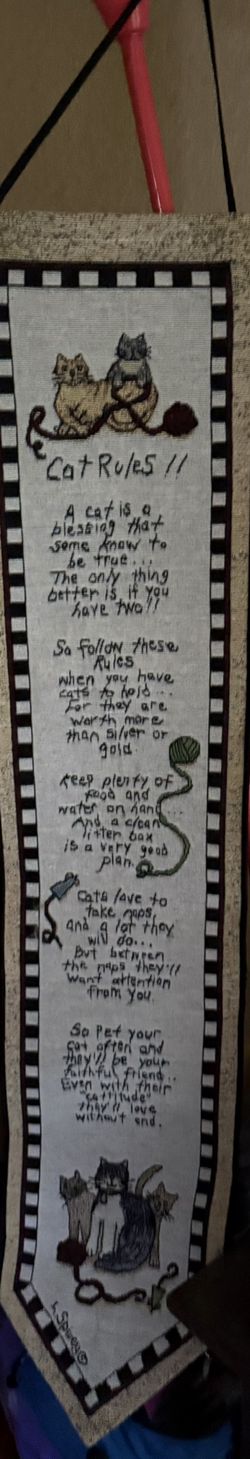 Cat Rules !!
A cat is a
blessing that
some know to
be true...
The only thing
better is if you
have two!!
So follow these
Rules
when you have
cats to hold...
For they are
worth more
than silver or
gold.
Keep plenty of
food and
water on hand...
And a clean
litter box
is a very good
plan.
Cats love to
take naps,
and a lot they
will do...
But between
the naps they'll
want attention
from you.
So Pet your
cat often and
they'll be your
faithful friend...
Even with their
"cattitude"
they'll love
without end.
L. Spivey©